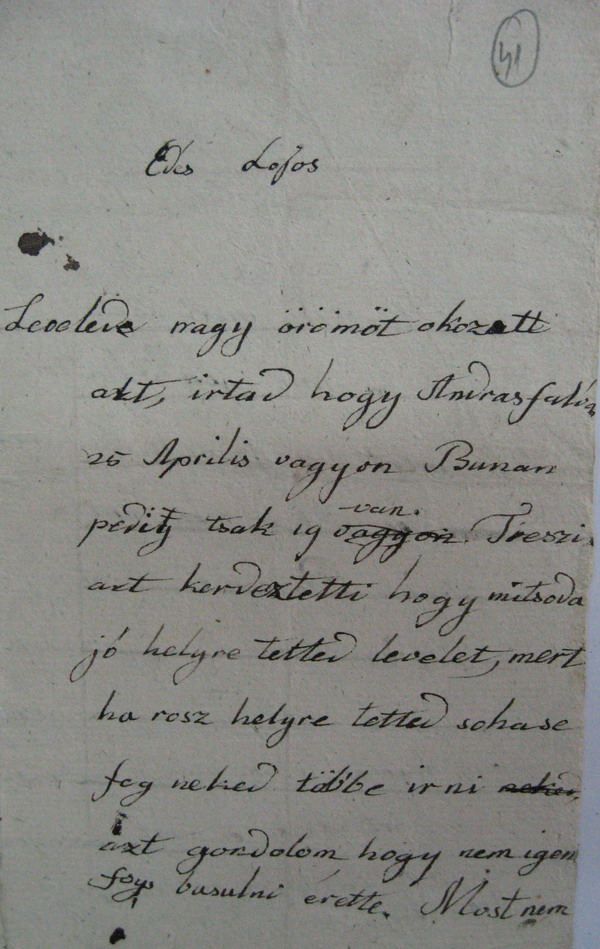 41
Edes Lajos
Leveled nagy örömöt okozott
azt, irtad hogy Andrasfalván
25 Aprilis vagyon Bunan
pedig tsak 19 vagyon van. Treszi
azt kerdeztetti hogy mitsoda
jó helyre tetted levelet, mert
ha rosz helyre tetted sohase
fog neked többe irni neked,
azt gondolom hogy nem igen
fogs busulni érette. Most nem